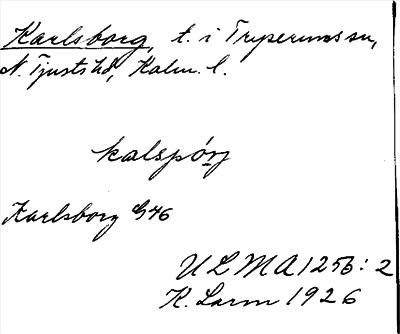 Karlsborg, t. i Tryserums sn,
N. Tjusts hd, Kalm. l.
kalspórj
Karlsborg G46
ULMA 1256:2
K. Larm 1926